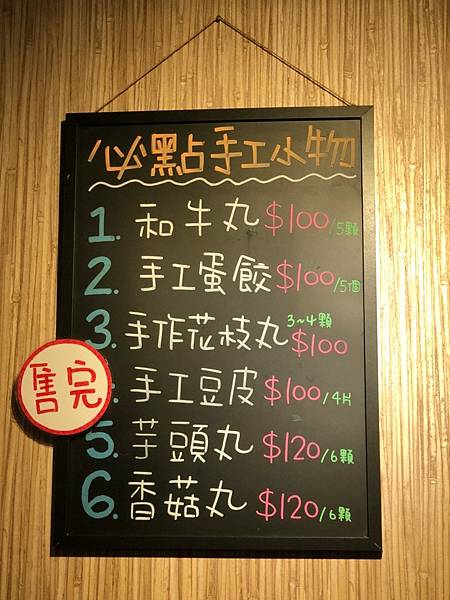 必點手工小物
1. 和牛丸 $100/5顆
2. 手工蛋餃 $100/5個
3. 手作花枝丸 3~4顆 $100
售完
4. 手工豆皮 $100/4片
5. 芋頭丸 $120/6顆
6. 香菇丸 $120/6顆